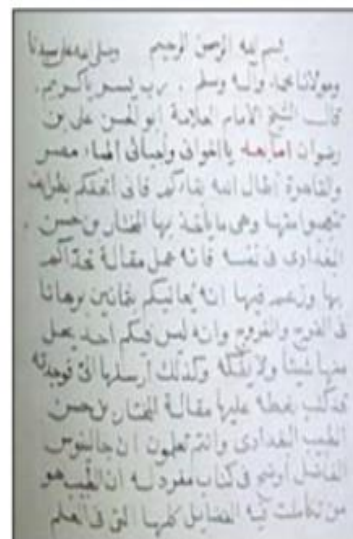 بسم الله الرحمن الرحيم وصلى الله على سيدنا
ومولانا محمد وآله وسلم . رب يسر يا كريم .
قال الشيخ الامام العلامة ابو الحسن على بن
رضوان اما بعد يا اخوانى واحبائى اطباء مصر
والقاهرة اطال الله بقاءكم فانى اتحفكم بطرايف
وهى ما يأخذ بها المختار بن حسن
البغدادى فى نفسه فانه عمل مقالة
بها وزعم فيها انه بثمانين برهانا
فى الفرخ والفروج وانه ليس فيكم احد يحل
منها شيئا ولا يفكه وكذلك ارسلها الى فوجدته
قد كتب بخطه عليها مقالة المختار بن حسن
الطبيب البغدادى وانتم تعلمون ان جالينوس
الفاضل اوضح فى كتاب مفرد له ان الطبيب هو
من تكاملت فيه الفضايل كلها التى فى العلم